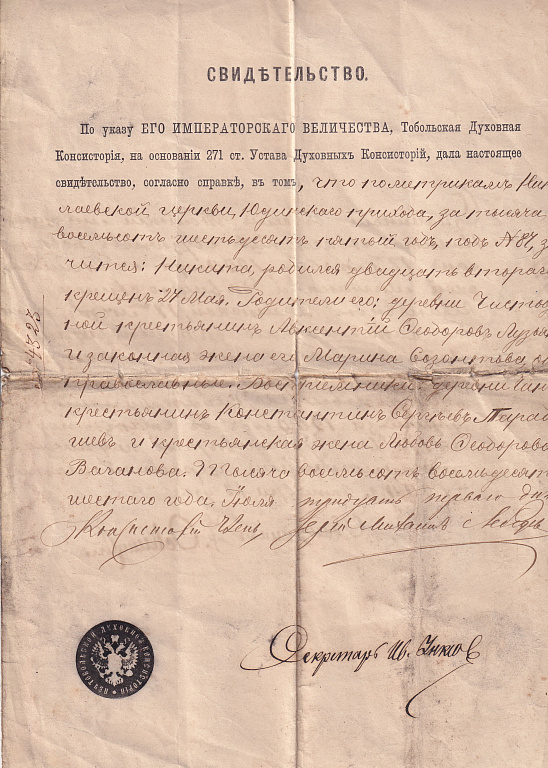 СВИДѢТЕЛЬСТВО.
По указу ЕГО ИМПЕРАТОРСКАГО ВЕЛИЧЕСТВА, Тобольская Духовная
Консисторія, на основаніи 271 ст. Устава Духовныхъ Консисторій, дала настоящее
свидѣтельство, согласно справкѣ, въ томъ, что по метрикамъ Ник
лаевской церкви, Юдинскаго прихода, за тысяча
восемьсотъ шестьдесятъ пятый годъ, подъ № 87, з
чится: Никита, родился двадцать втораго
крещенъ 27 Мая. Родители его: деревни
ной крестьянинъ Ѳеодоровъ
и законная жена его Марина Созонтова, о
православные. Воспріемники: деревни
крестьянинъ Константинъ Сергѣевъ
и крестьянская жена Любовь Ѳеодорова
Ваганова. Тысяча восемьсотъ восемьдесятъ
шестаго года. Іюля тридцать перваго дня
4323
Членъ
Секретарь Ив.
ПЕЧ. ТОБОЛЬСКОЙ ДУХОВНОЙ КОНСИСТОРІИ